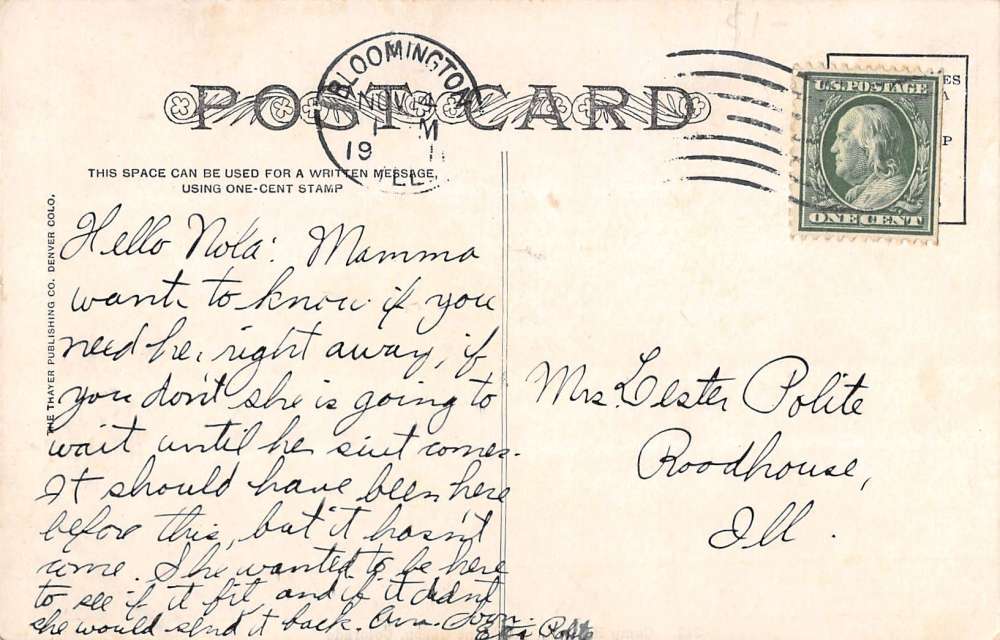 BLOOMINGTON
NOV 4
1 M
19 1
ILL
POST CARD
ES
A
P
U.S. POSTAGE
ONE CENT
THIS SPACE CAN BE USED FOR A WRITTEN MESSAGE,
USING ONE-CENT STAMP
THE THAYER PUBLISHING CO. DENVER COLO.
Hello Nola: Mamma
wants to know if you
need her right away, if
you don't she is going to
wait until her suit comes.
It should have been here
before this, but it hasn't
come. She wanted to be here
to see if it fit and if it didn't
she would send it back. Ans. soon.
Polite
Mrs. Lester Polite
Roodhouse,
Ill.